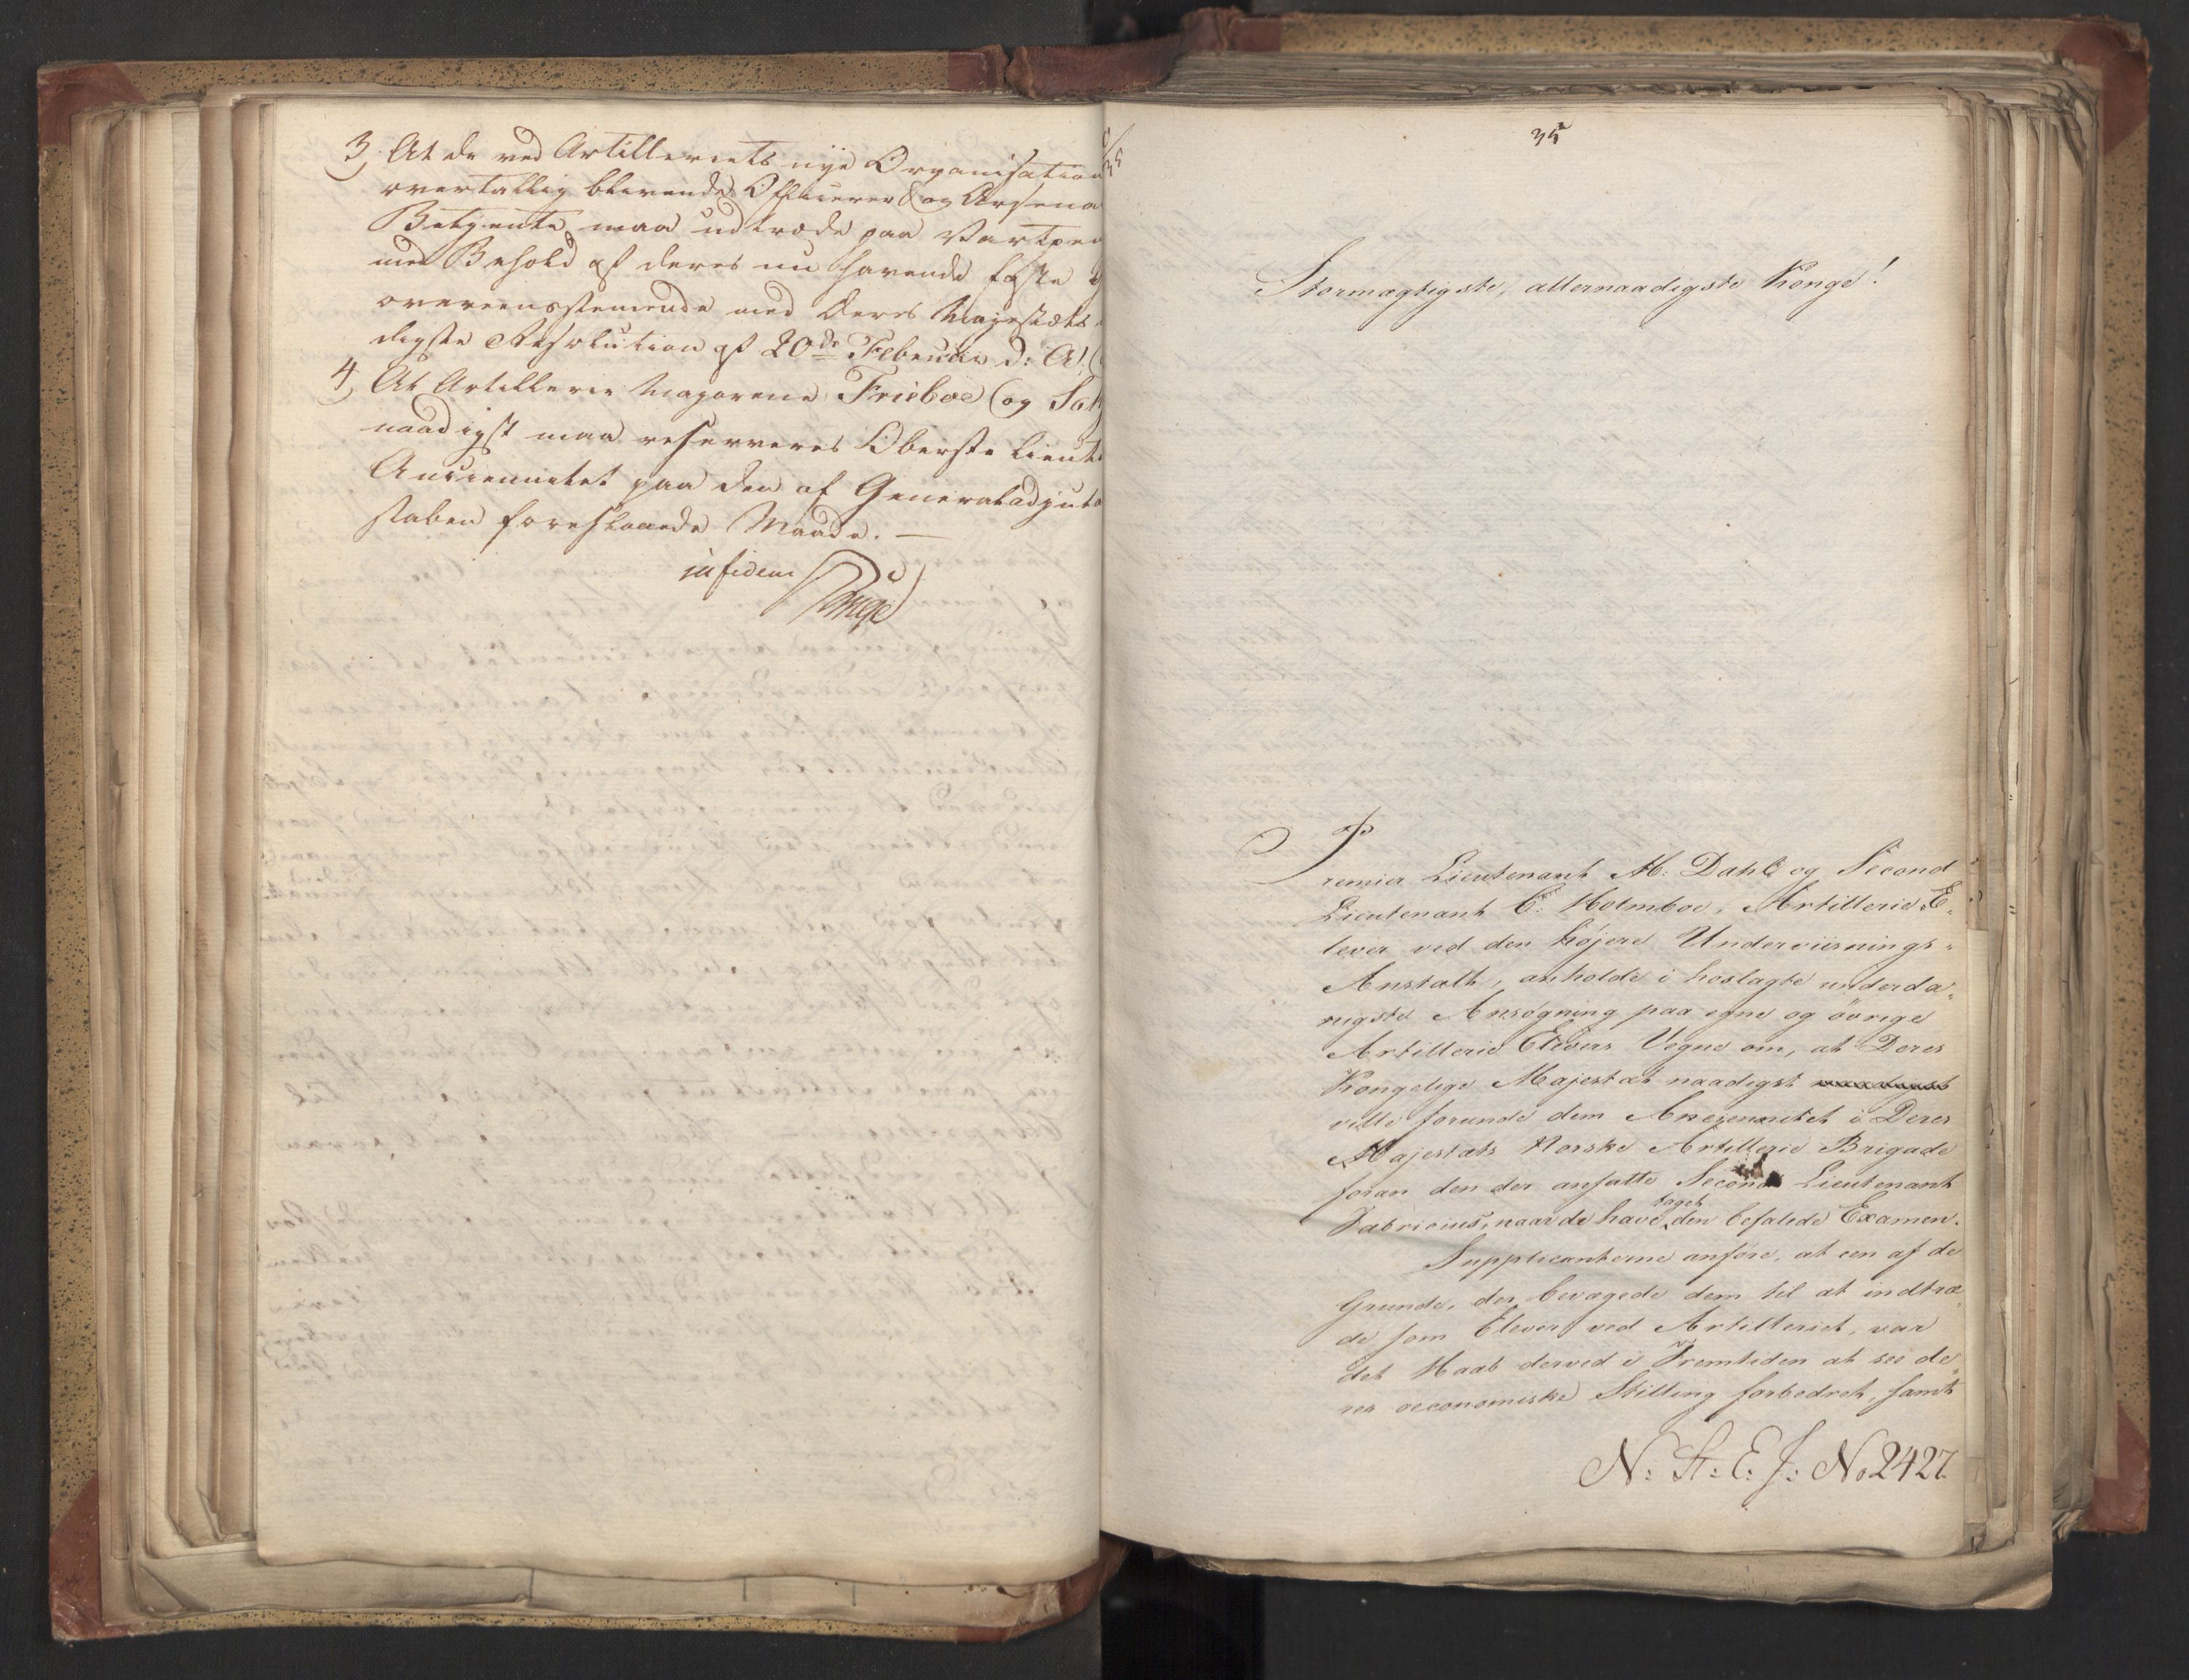 3, At de ved Artilleriets nye Organisation
overtallig blivende Officierer og Arsena
Betjente maa udtræde paa Vartpen
med Behold af deres nu havende faste
overeensstemende med Deres Majestæts
digste Resolution af 20de Februar d: A:
4, At Artillerie Majorene Frieboe og
naadigst maa reserveres Oberste Lieut
Anciennitet paa den af Generaladjut
staben foreslaaede Maade. —
in fidem
35
Stormægtigste, allernaadigste Konge!
Premier Lieutenant M: Dahl og Second
Lieutenant C: Holmboe, Artillerie E-
lever ved den høiere Underviisnings-
Anstalt, anholde i hoslagte underda-
nigste Ansøgning paa egne og øvrige
Artillerie Elevers Vegne om, at Deres
Kongelige Majestæt naadigst
ville forunde dem Anciennitet i Deres
Majestæts Norske Artillerie Brigade
foran den der ansatte Second Lieutenant
Fabricius, naar de have taget den befalede Examen.
Supplicanterne anføre, at een af de
Grunde, der bevægede dem til at indtræ-
de som Elever ved Artilleriet, var
det Haab derved i Fremtiden at see de-
res oeconomiske Stilling forbedret, samt
N: St: E: J: No 2427